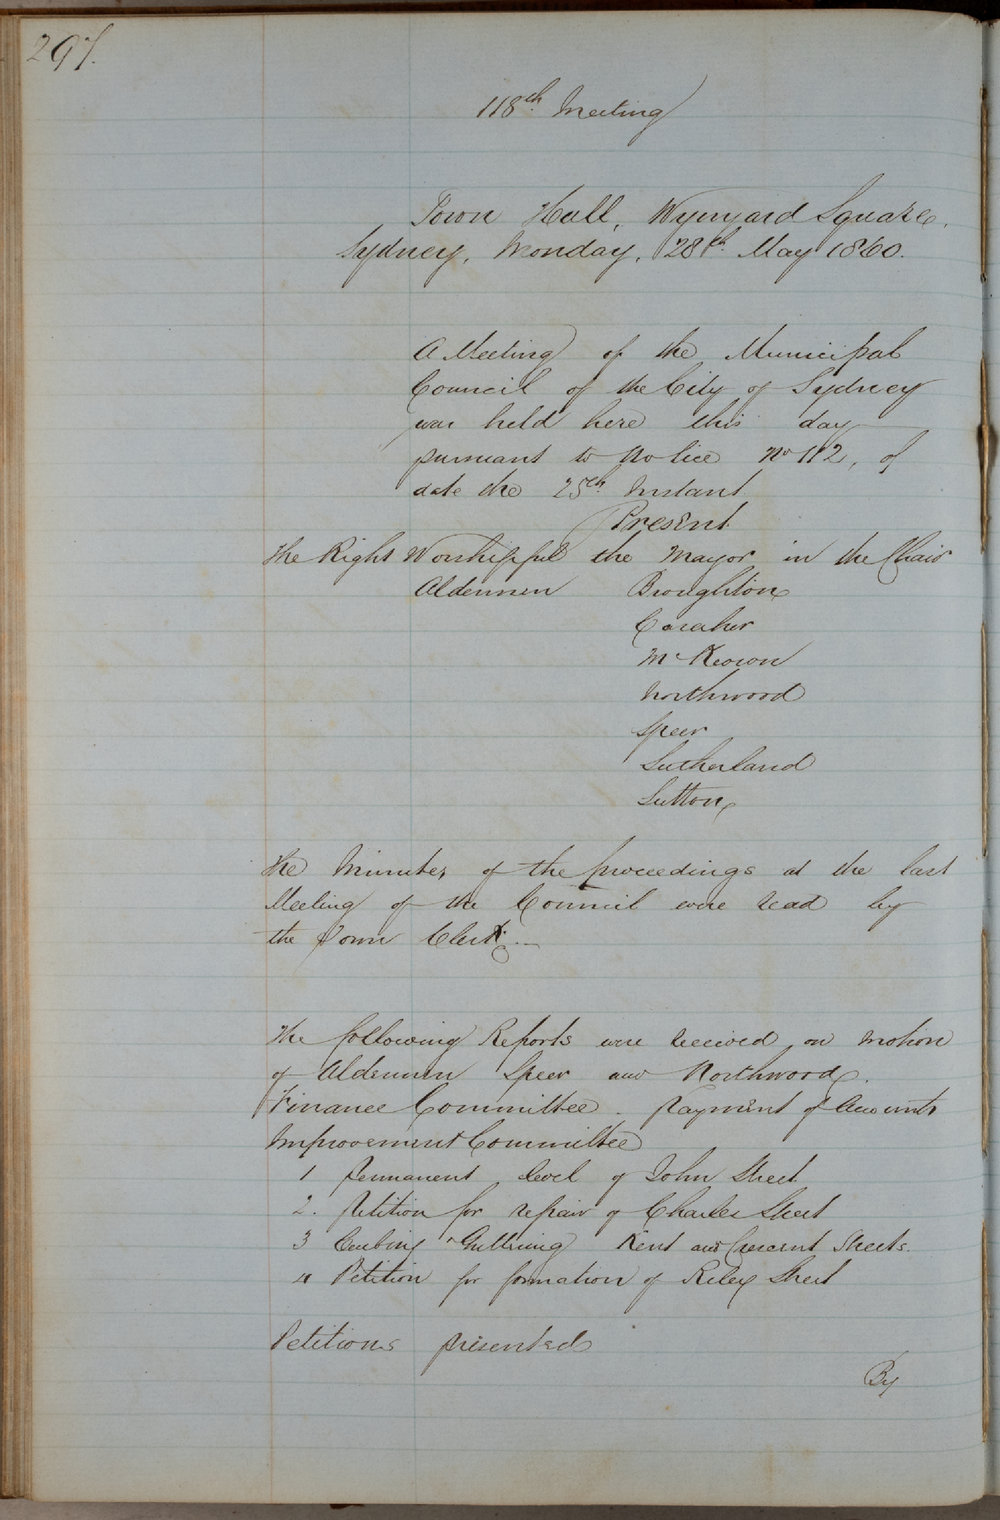 297.
118th Meeting
Town Hall, Wynyard Square,
Sydney, Monday, 28th May 1860.
A Meeting of the Municipal
Council of the City of Sydney
was held here this day
pursuant to Notice No 112, of
date the 25th Instant
Present
The Right Worshipful the Mayor in the Chair
Aldermen Broughton
Caraher
McKeown
Northwood
Speer
Sutherland
Sutton
The Minutes of the proceedings at the last
Meeting of the Council were read by
the Town Clerk.
The following Reports were received on motion
of Aldermen Speer and Northwood.
Finance Committee. Payment of Accounts
Improvement Committee
1 Permanent level of John Street
2. Petition for repair of Charles Street
3 Curbing & Guttering Kent and Crescent Streets.
4 Petition for formation of Riley Street
Petitions presented
By